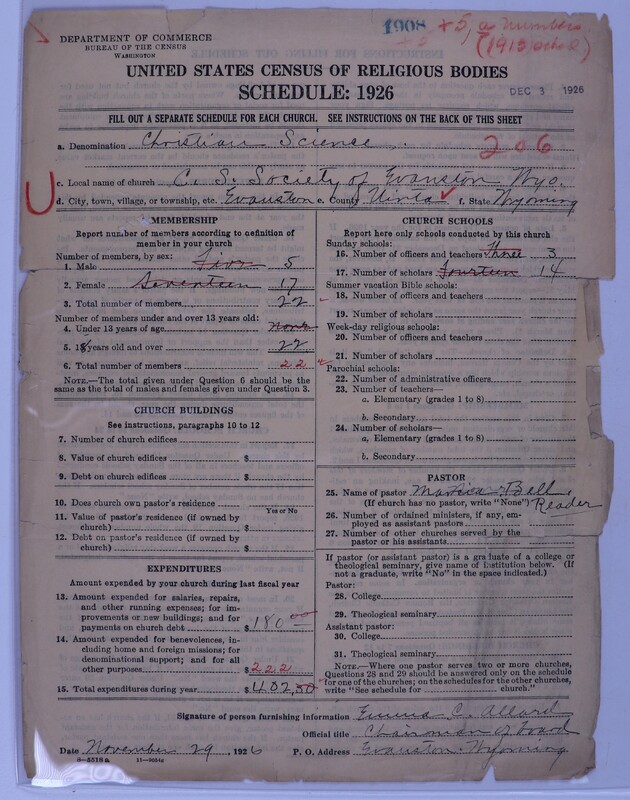 1908 +5, a numbers
+5 (1913 also a)
DEPARTMENT OF COMMERCE
BUREAU OF THE CENSUS
WASHINGTON
UNITED STATES CENSUS OF RELIGIOUS BODIES
SCHEDULE: 1926
DEC 3 1926
FILL OUT A SEPARATE SCHEDULE FOR EACH CHURCH. SEE INSTRUCTIONS ON THE BACK OF THIS SHEET
a. Denomination Christian Science. 206
c. Local name of church C. S. Society of Evanston Wyo.
d. City, town, village, or township, etc. Evanston e. County Uinta f. State Wyoming
MEMBERSHIP
Report number of members according to definition of
member in your church
Number of members, by sex:
1. Male Five 5
2. Female Seventeen 17
3. Total number of members 22
Number of members under and over 13 years old:
4. Under 13 years of age none
5. 13 years old and over 22
6. Total number of members 22
NOTE.—The total given under Question 6 should be the
same as the total of males and females given under Question 3.
CHURCH BUILDINGS
See instructions, paragraphs 10 to 12
7. Number of church edifices
8. Value of church edifices $
9. Debt on church edifices $
10. Does church own pastor's residence
Yes or No
11. Value of pastor's residence (if owned by
church) $
12. Debt on pastor's residence (if owned by
church) $
EXPENDITURES
Amount expended by your church during last fiscal year
13. Amount expended for salaries, repairs,
and other running expenses; for im-
provements or new buildings; and for
payments on church debt $180.00
14. Amount expended for benevolences, in-
cluding home and foreign missions; for
denominational support; and for all
other purposes $222
15. Total expenditures during year $402.50
CHURCH SCHOOLS
Report here only schools conducted by this church
Sunday schools:
16. Number of officers and teachers Three 3
17. Number of scholars Fourteen 14
Summer vacation Bible schools:
18. Number of officers and teachers
19. Number of scholars
Week-day religious schools:
20. Number of officers and teachers
21. Number of scholars
Parochial schools:
22. Number of administrative officers
23. Number of teachers—
a. Elementary (grades 1 to 8)
b. Secondary
24. Number of scholars—
a. Elementary (grades 1 to 8)
b. Secondary
PASTOR
25. Name of pastor Bell
(If church has no pastor, write "None") Reader
26. Number of ordained ministers, if any, em-
ployed as assistant pastors
27. Number of other churches served by the
pastor or his assistants
If pastor (or assistant pastor) is a graduate of a college or
theological seminary, give name of institution below. (If
not a graduate, write "No" in the space indicated.)
Pastor:
28. College
29. Theological seminary
Assistant pastor:
30. College
31. Theological seminary
NOTE.—Where one pastor serves two or more churches,
Questions 28 and 29 should be answered only on the schedule
for one of the churches; on the schedules for the other churches,
write "See schedule for church."
Signature of person furnishing information Emma C. Allard
Official title Chairman of Board
Date November 29, 1926 P. O. Address Evanston Wyoming
8-5518a 11-9034